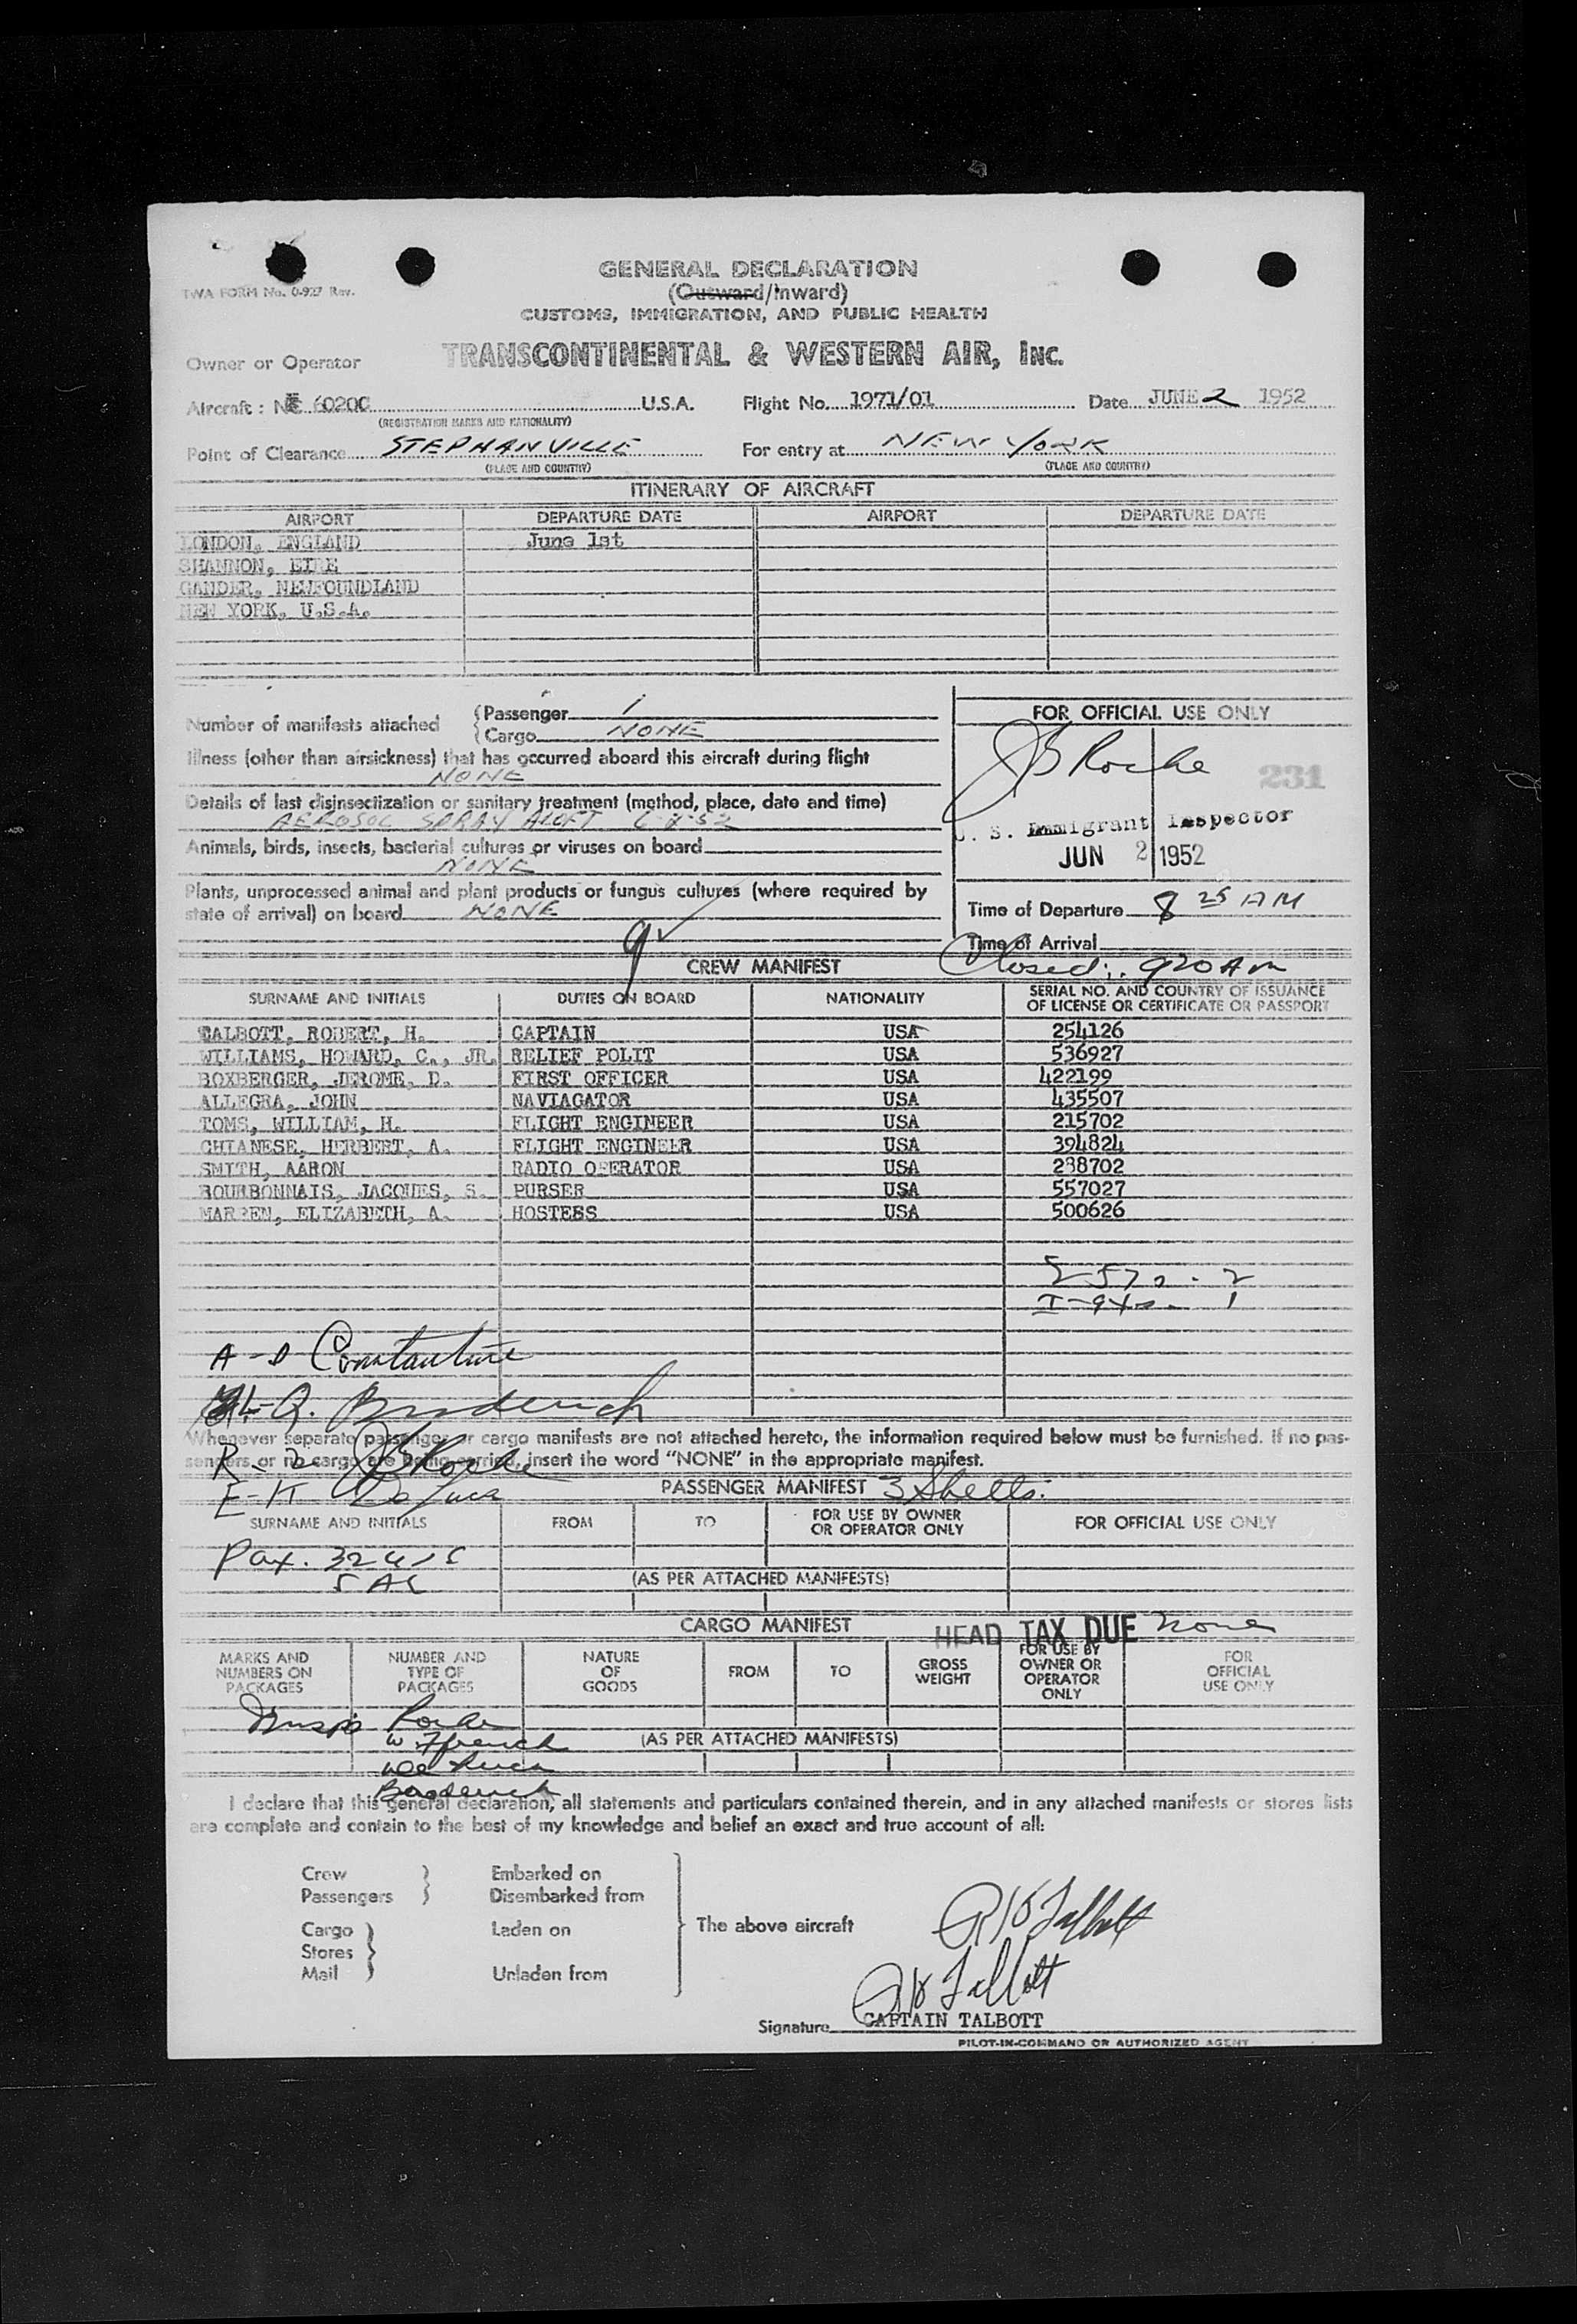 GENERAL DECLARATION
TWA FORM No. 0-927 Rev.
(Outward/Inward)
CUSTOMS, IMMIGRATION, AND PUBLIC HEALTH
Owner or Operator TRANSCONTINENTAL & WESTERN AIR, INC.
Aircraft: N 6020C U.S.A. Flight No. 1971/01 Date JUNE 2 1952
(REGISTRATION MARKS AND NATIONALITY)
Point of Clearance STEPHANVILLE For entry at NEW YORK
(PLACE AND COUNTRY) (PLACE AND COUNTRY)
ITINERARY OF AIRCRAFT
AIRPORT DEPARTURE DATE AIRPORT DEPARTURE DATE
LONDON, ENGLAND June 1st
SHANNON, EIRE
GANDER, NEWFOUNDLAND
NEW YORK, U.S.A.
Number of manifests attached Passenger 1
Cargo NONE
Illness (other than airsickness) that has occurred aboard this aircraft during flight
NONE
Details of last disinsectization or sanitary treatment (method, place, date and time)
AEROSOL SPRAY ALOFT 6-2-52
Animals, birds, insects, bacterial cultures or viruses on board
NONE
Plants, unprocessed animal and plant products or fungus cultures (where required by
state of arrival) on board NONE
FOR OFFICIAL USE ONLY
JB Roche
231
U. S. Immigrant Inspector
JUN 2 1952
Time of Departure 8 25 AM
Time of Arrival
Closed: 920 Am
9
CREW MANIFEST
SURNAME AND INITIALS DUTIES ON BOARD NATIONALITY SERIAL NO. AND COUNTRY OF ISSUANCE
OF LICENSE OR CERTIFICATE OR PASSPORT
TALBOTT, ROBERT, H. CAPTAIN USA 254126
WILLIAMS, HOWARD, C., JR. RELIEF POLIT USA 536927
BOXBERGER, JEROME, D. FIRST OFFICER USA 422199
ALLEGRA, JOHN NAVIAGATOR USA 435507
TOMS, WILLIAM, H. FLIGHT ENGINEER USA 215702
CHIANESE, HERBERT, A. FLIGHT ENGINEER USA 394824
SMITH, AARON RADIO OPERATOR USA 288702
BOURBONNAIS, JACQUES, S. PURSER USA 557027
MARREN, ELIZABETH, A. HOSTEES USA 500626
A-D Constantine
Q. Broderick
Whenever separate passenger or cargo manifests are not attached hereto, the information required below must be furnished. If no pas-
sengers or no cargo are being carried, insert the word "NONE" in the appropriate manifest.
R - 2 JB Roche
E-K De Luca
PASSENGER MANIFEST 3 Shells.
SURNAME AND INITIALS FROM TO FOR USE BY OWNER
OR OPERATOR ONLY FOR OFFICIAL USE ONLY
Pax.
(AS PER ATTACHED MANIFESTS)
CARGO MANIFEST HEAD TAX DUE None
MARKS AND
NUMBERS ON
PACKAGES NUMBER AND
TYPE OF
PACKAGES NATURE
OF
GOODS FROM TO GROSS
WEIGHT FOR USE BY
OWNER OR
OPERATOR
ONLY FOR
OFFICIAL
USE ONLY
Insps Roche
W. Ffrench
(AS PER ATTACHED MANIFESTS)
De Luca
Broderick
I declare that this general declaration, all statements and particulars contained therein, and in any attached manifests or stores lists
are complete and contain to the best of my knowledge and belief an exact and true account of all:
Crew Embarked on
Passengers Disembarked from
Cargo Laden on The above aircraft
Stores
Mail Unladen from
RH Talbott
RH Talbott
Signature CAPTAIN TALBOTT
PILOT-IN-COMMAND OR AUTHORIZED AGENT